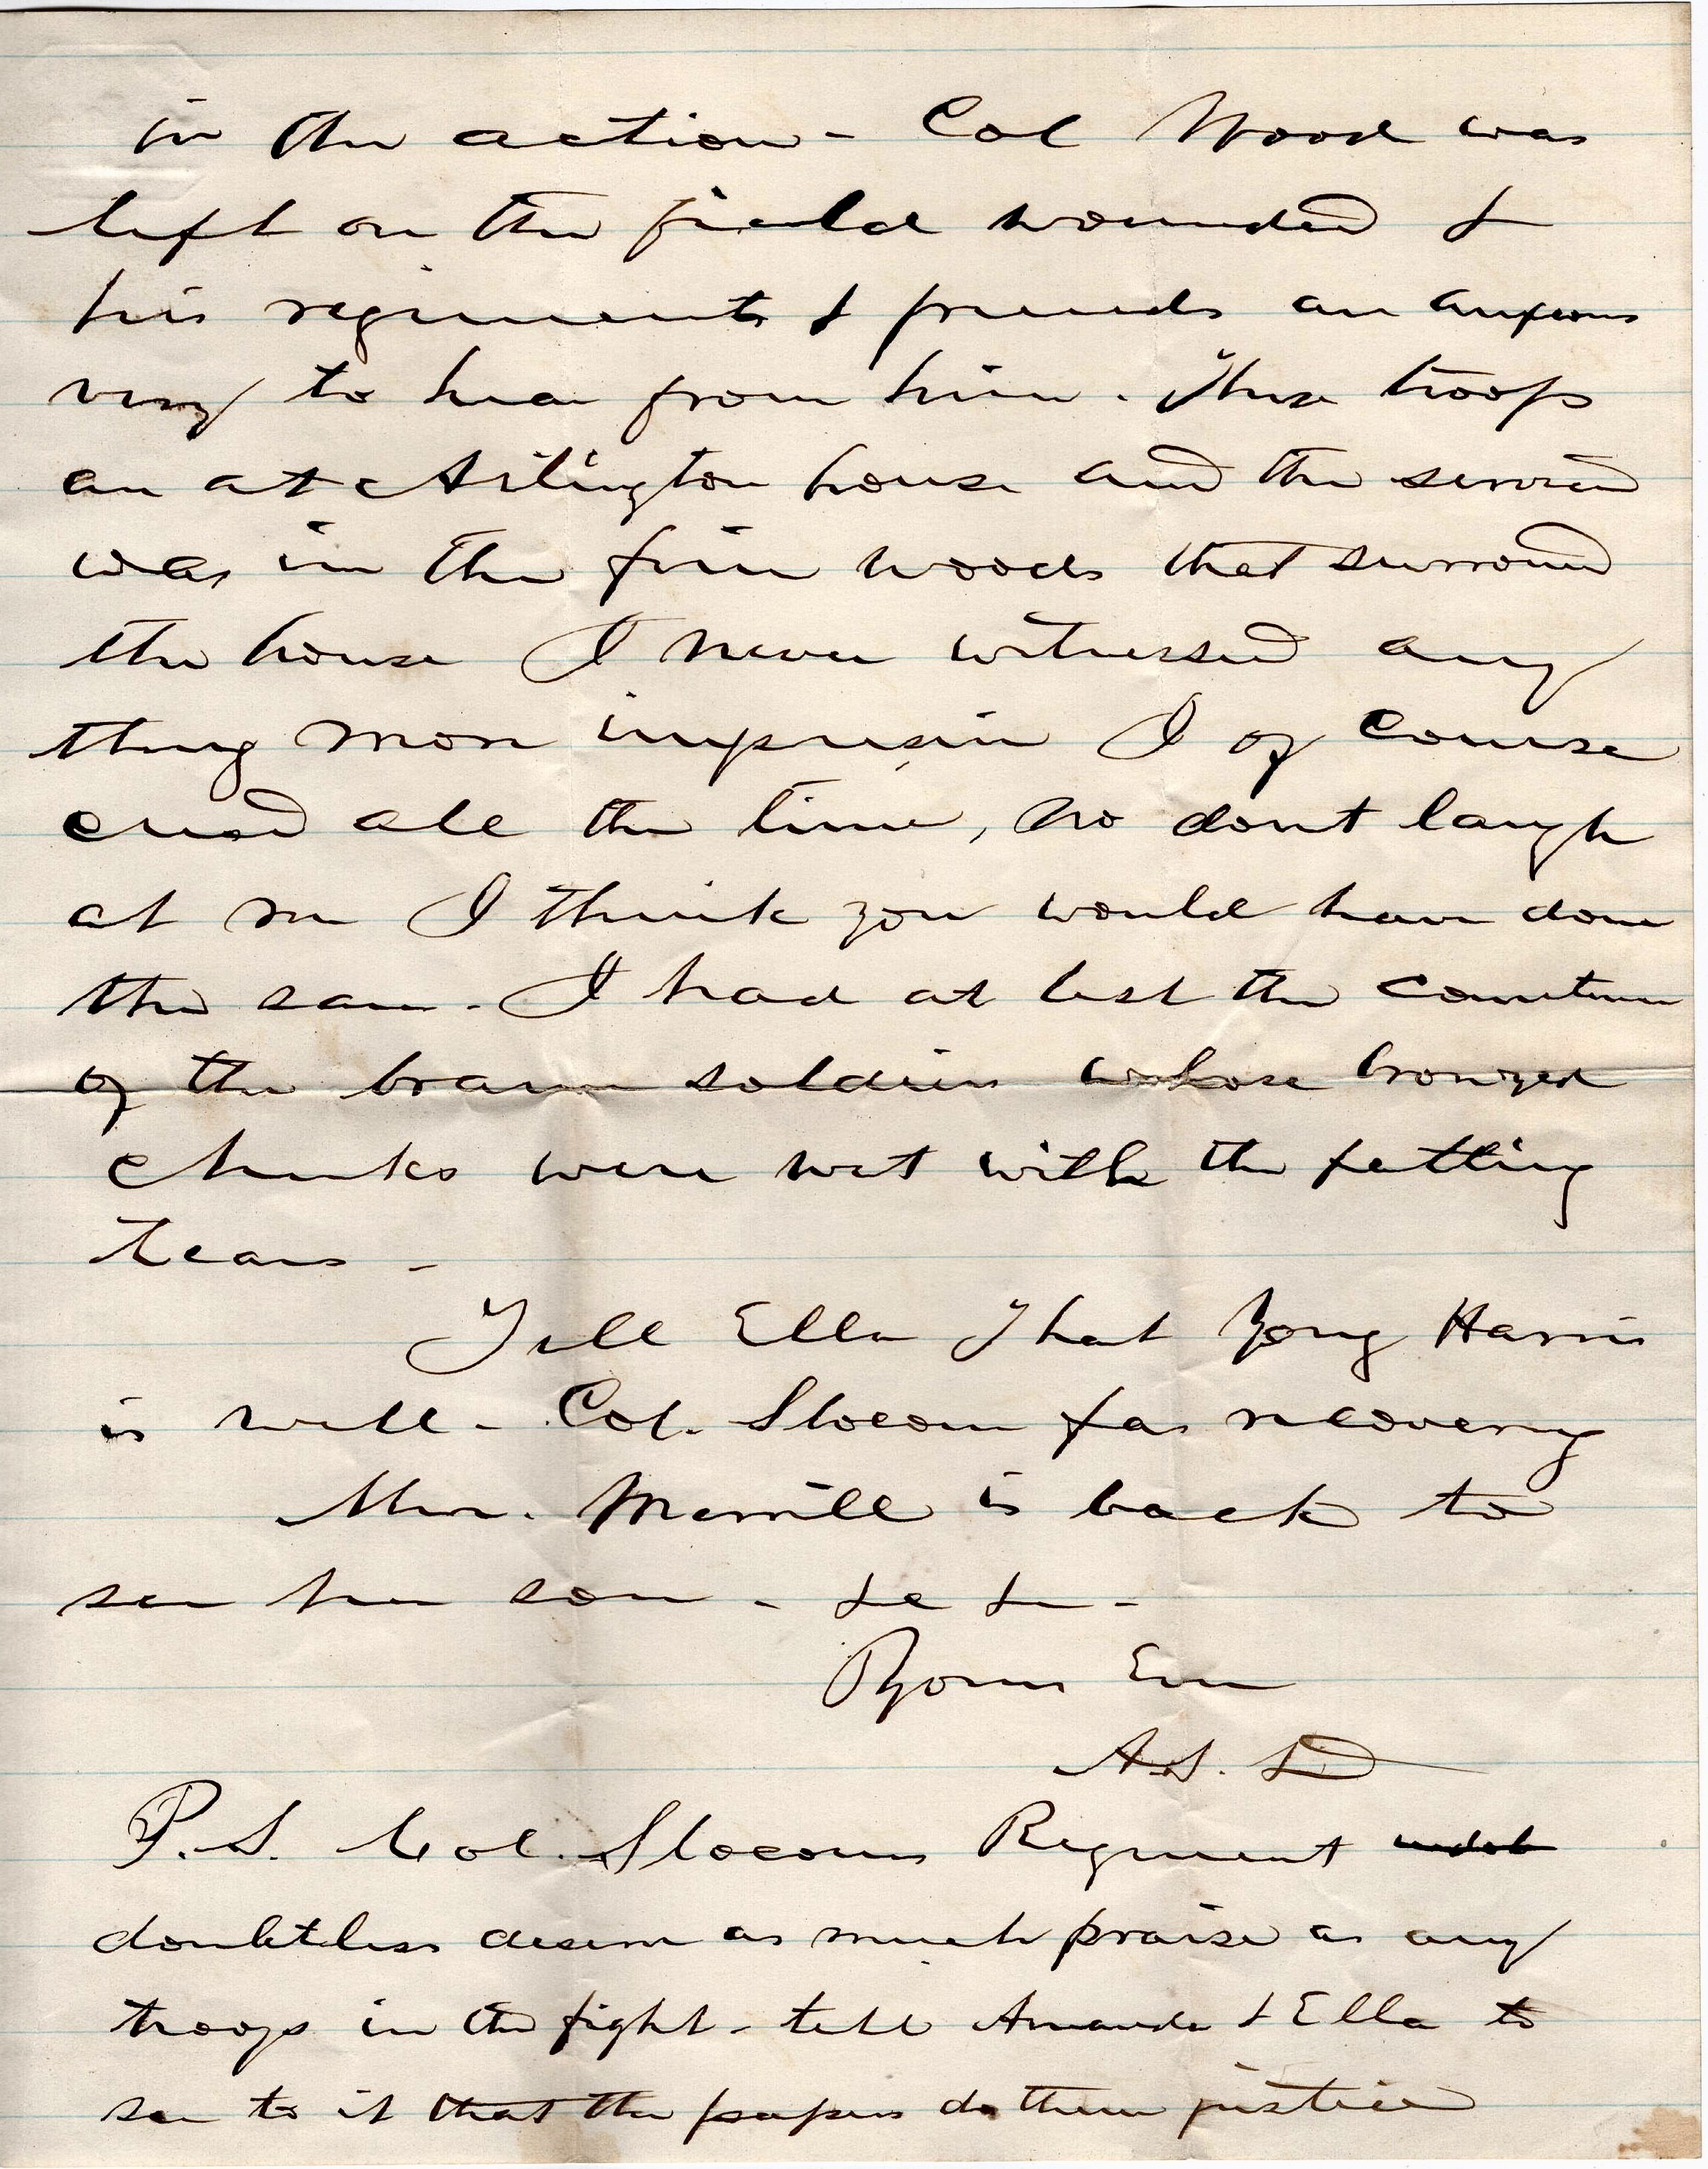 in the action - Col Wood was
left on the field wounded &
his regiment & friends are anxious
very to hear from him. These troops
are at Arlington house and the service
was in the fine woods that surround
the house I never witnessed any
thing more impressive I of course
cried all the time, no dont laugh
at me I think you would have done
the same. I had at last the countenance
of the brave soldiers whose bronzed
cheeks were wet with the falling
tears -
Tell Ella That Young Harris
is well - Col. Slocum far recovering
Mrs. Merrill is back to
see her son - &c &c -
Yours Ever
A.S. D
P.S. Col. Slocum Regiment
doubtless deserve as much praise as any
troops in the fight - tell Amanda & Ella to
see to it that the papers do them justice